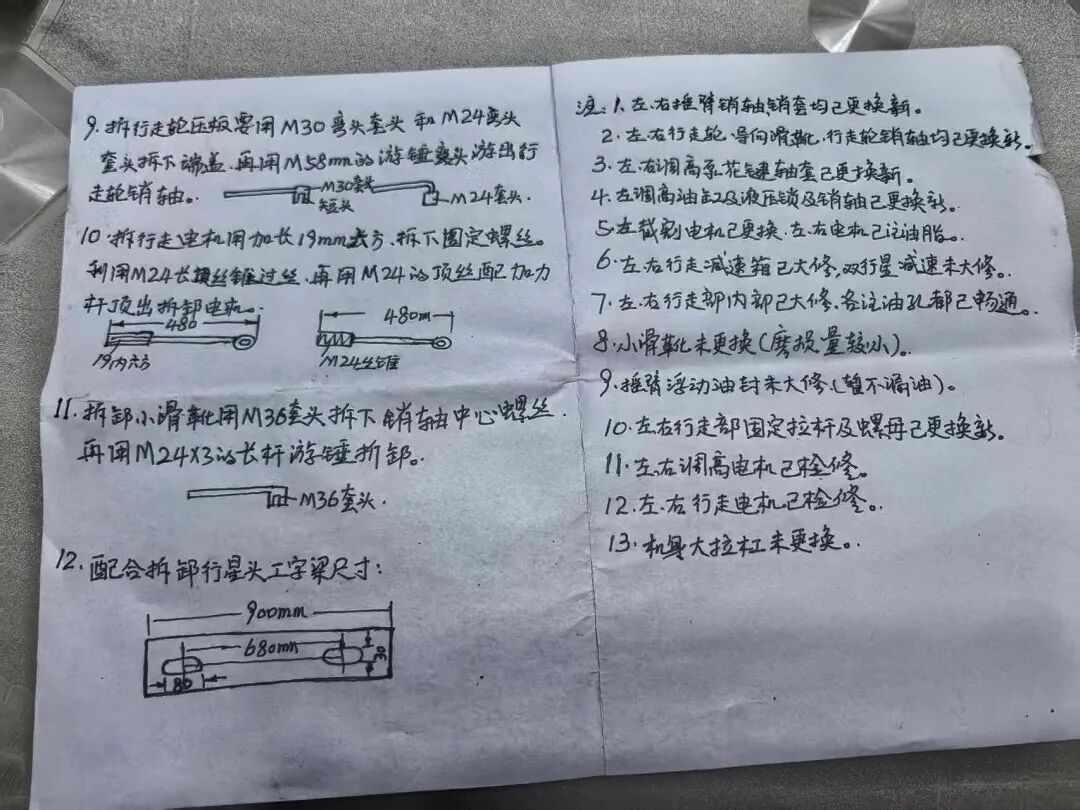 9. 拆行走轮压板要用M30弯头套头和M24弯头
套头拆下端盖.再用M58mm的游锤弯头游出行
走轮销轴。
M30套头
短头
M24套头.
10.拆行走电机用加长19mm六方.拆下固定螺丝。
利用M24长螺丝锥过丝.再用M24的顶丝配加力
杆顶出拆卸电机。
480
19内六方
480m
M24丝锥
11.拆卸小滑靴用M36套头拆下销轴中心螺丝.
再用M24X3的长杆游锤折卸。
M36套头.
12.配合拆卸行星头工字梁尺寸:
900mm
680mm
30
80
注:1.左.右摇臂销轴.销套均已更换新。
2.左.右行走轮.导向滑靴.行走轮销轴均已更换新。
3.左.右调高泵花键轴套已更换新。
4.左调高油缸及液压锁及销轴已更换新。
5.左截割电机已更换.左.右电机已注油脂。
6.左.右行走减速箱已大修.双行星减速未大修。
7.左.右行走部内部已大修.各注油孔都已畅通。
8.小滑靴未更换(磨损量较小)。
9.摇臂浮动油封未大修(暂不漏油)。
10.左右行走部固定拉杆及螺母已更换新。
11.左.右调高电机已检修。
12.左.右行走电机已检修。
13.机身大拉杠未更换。